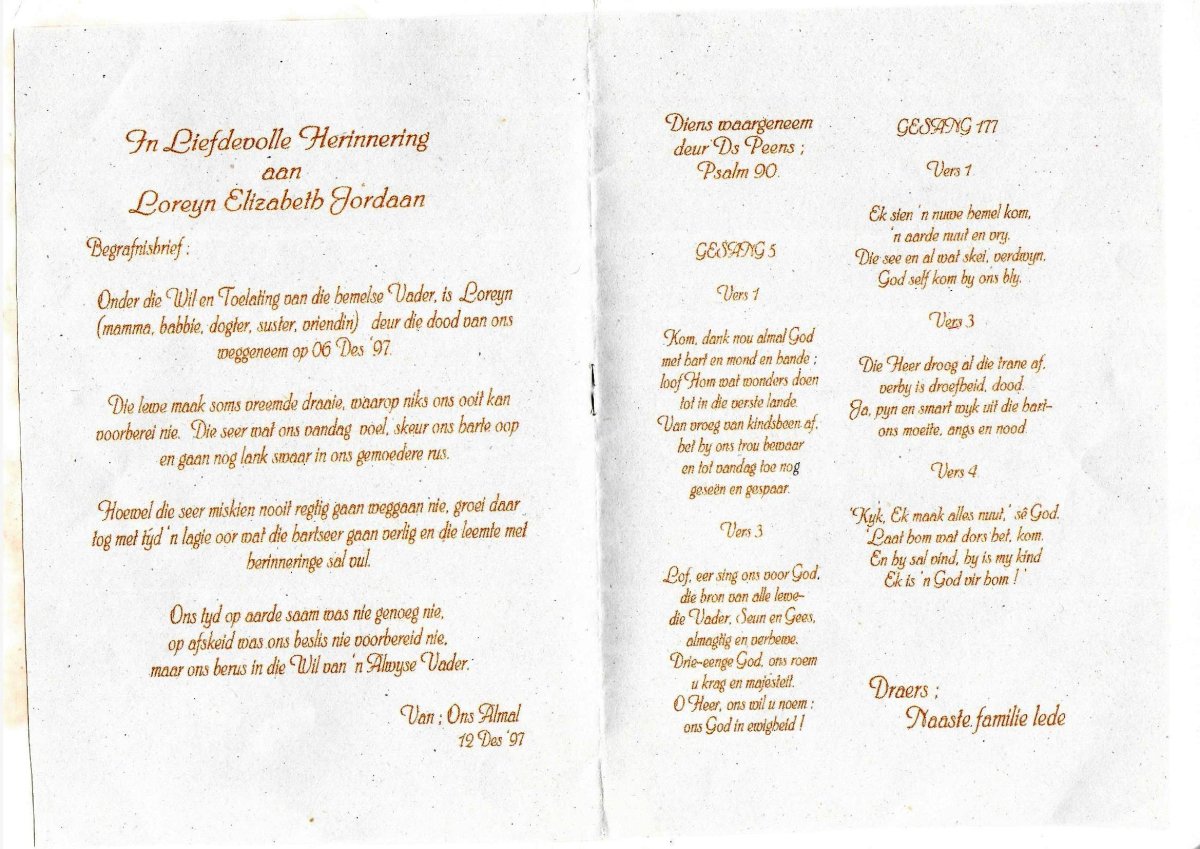 In Liefdevolle Herinnering
aan
Loreyn Elizabeth Jordaan
Begrafnisbrief :
Onder die Wil en Toelating van die hemelse Vader, is Loreyn
(mamma, babbie, dogter, suster, vriendin) deur die dood van ons
weggeneem op 06 Des '97.
Die lewe maak soms vreemde draaie, waarop niks ons ooit kan
voorberei nie. Die seer wat ons vandag voel, skeur ons harte oop
en gaan nog lank swaar in ons gemoedere rus.
Hoewel die seer miskien nooit regtig gaan weggaan nie, groei daar
tog met tyd 'n lagie oor wat die hartseer gaan verlig en die leemte met
herinneringe sal vul.
Ons tyd op aarde saam was nie genoeg nie,
op afskeid was ons beslis nie voorbereid nie,
maar ons berus in die Wil van 'n Alwyse Vader.
Van ; Ons Almal
12 Des '97
Diens waargeneem
deur Ds Peens ;
Psalm 90.
GESANG 5
Vers 1
Kom, dank nou almal God
met hart en mond en hande ;
loof Hom wat wonders doen
tot in die verste lande.
Van vroeg van kindsbeen af,
het hy ons trou bewaar
en tot vandag toe nog
geseën en gespaar.
Vers 3
Lof, eer sing ons voor God,
die bron van alle lewe-
die Vader, Seun en Gees,
almagtig en verhewe.
Drie-eenge God, ons roem
u krag en majesteit.
O Heer, ons wil u noem ;
ons God in ewigheid !
GESANG 177
Vers 1
Ek sien 'n nuwe hemel kom,
'n aarde nuut en vry.
Die see en al wat skei, verdwyn.
God self kom by ons bly.
Vers 3
Die Heer droog al die trane af,
verby is droefheid, dood.
Ja, pyn en smart wyk uit die hart-
ons moeite, angs en nood.
Vers 4
'Kyk, Ek maak alles nuut,' sê God.
'Laat hom wat dors het, kom.
En hy sal vind, hy is my kind
Ek is 'n God vir hom ! '
Draers ;
Naaste familie lede